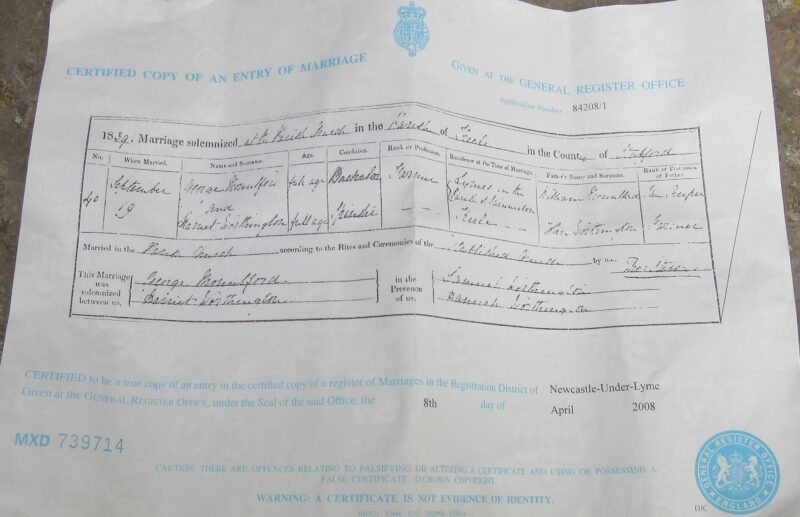 CERTIFIED COPY OF AN ENTRY OF MARRIAGE
GIVEN AT THE GENERAL REGISTER OFFICE
Application Number 84208/1
1839. Marriage solemnized at the Parish Church in the Parish of Keele in the County of Stafford
No. When Married. Name and Surname. Age. Condition. Rank or Profession. Residence at the Time of Marriage. Father's Name and Surname. Rank or Profession of Father.
40 September 19 George Mountford full age Bachelor Farmer William Mountford Inn Keeper
and
Harriet Worthington full age Keele Wm Worthington Farmer
Married in the Parish Church according to the Rites and Ceremonies of the Established Church by me,
This Marriage was solemnized between us, George Mountford Harriet Worthington in the Presence of us, Samuel Worthington Hannah Worthington
CERTIFIED to be a true copy of an entry in the certified copy of a register of Marriages in the Registration District of Newcastle-Under-Lyme
Given at the GENERAL REGISTER OFFICE, under the Seal of the said Office, the 8th day of April 2008
MXD 739714
CAUTION: THERE ARE OFFENCES RELATING TO FALSIFYING OR ALTERING A CERTIFICATE AND USING OR POSSESSING A
FALSE CERTIFICATE. © CROWN COPYRIGHT
WARNING: A CERTIFICATE IS NOT EVIDENCE OF IDENTITY.
GENERAL REGISTER OFFICE
ENGLAND
DJC